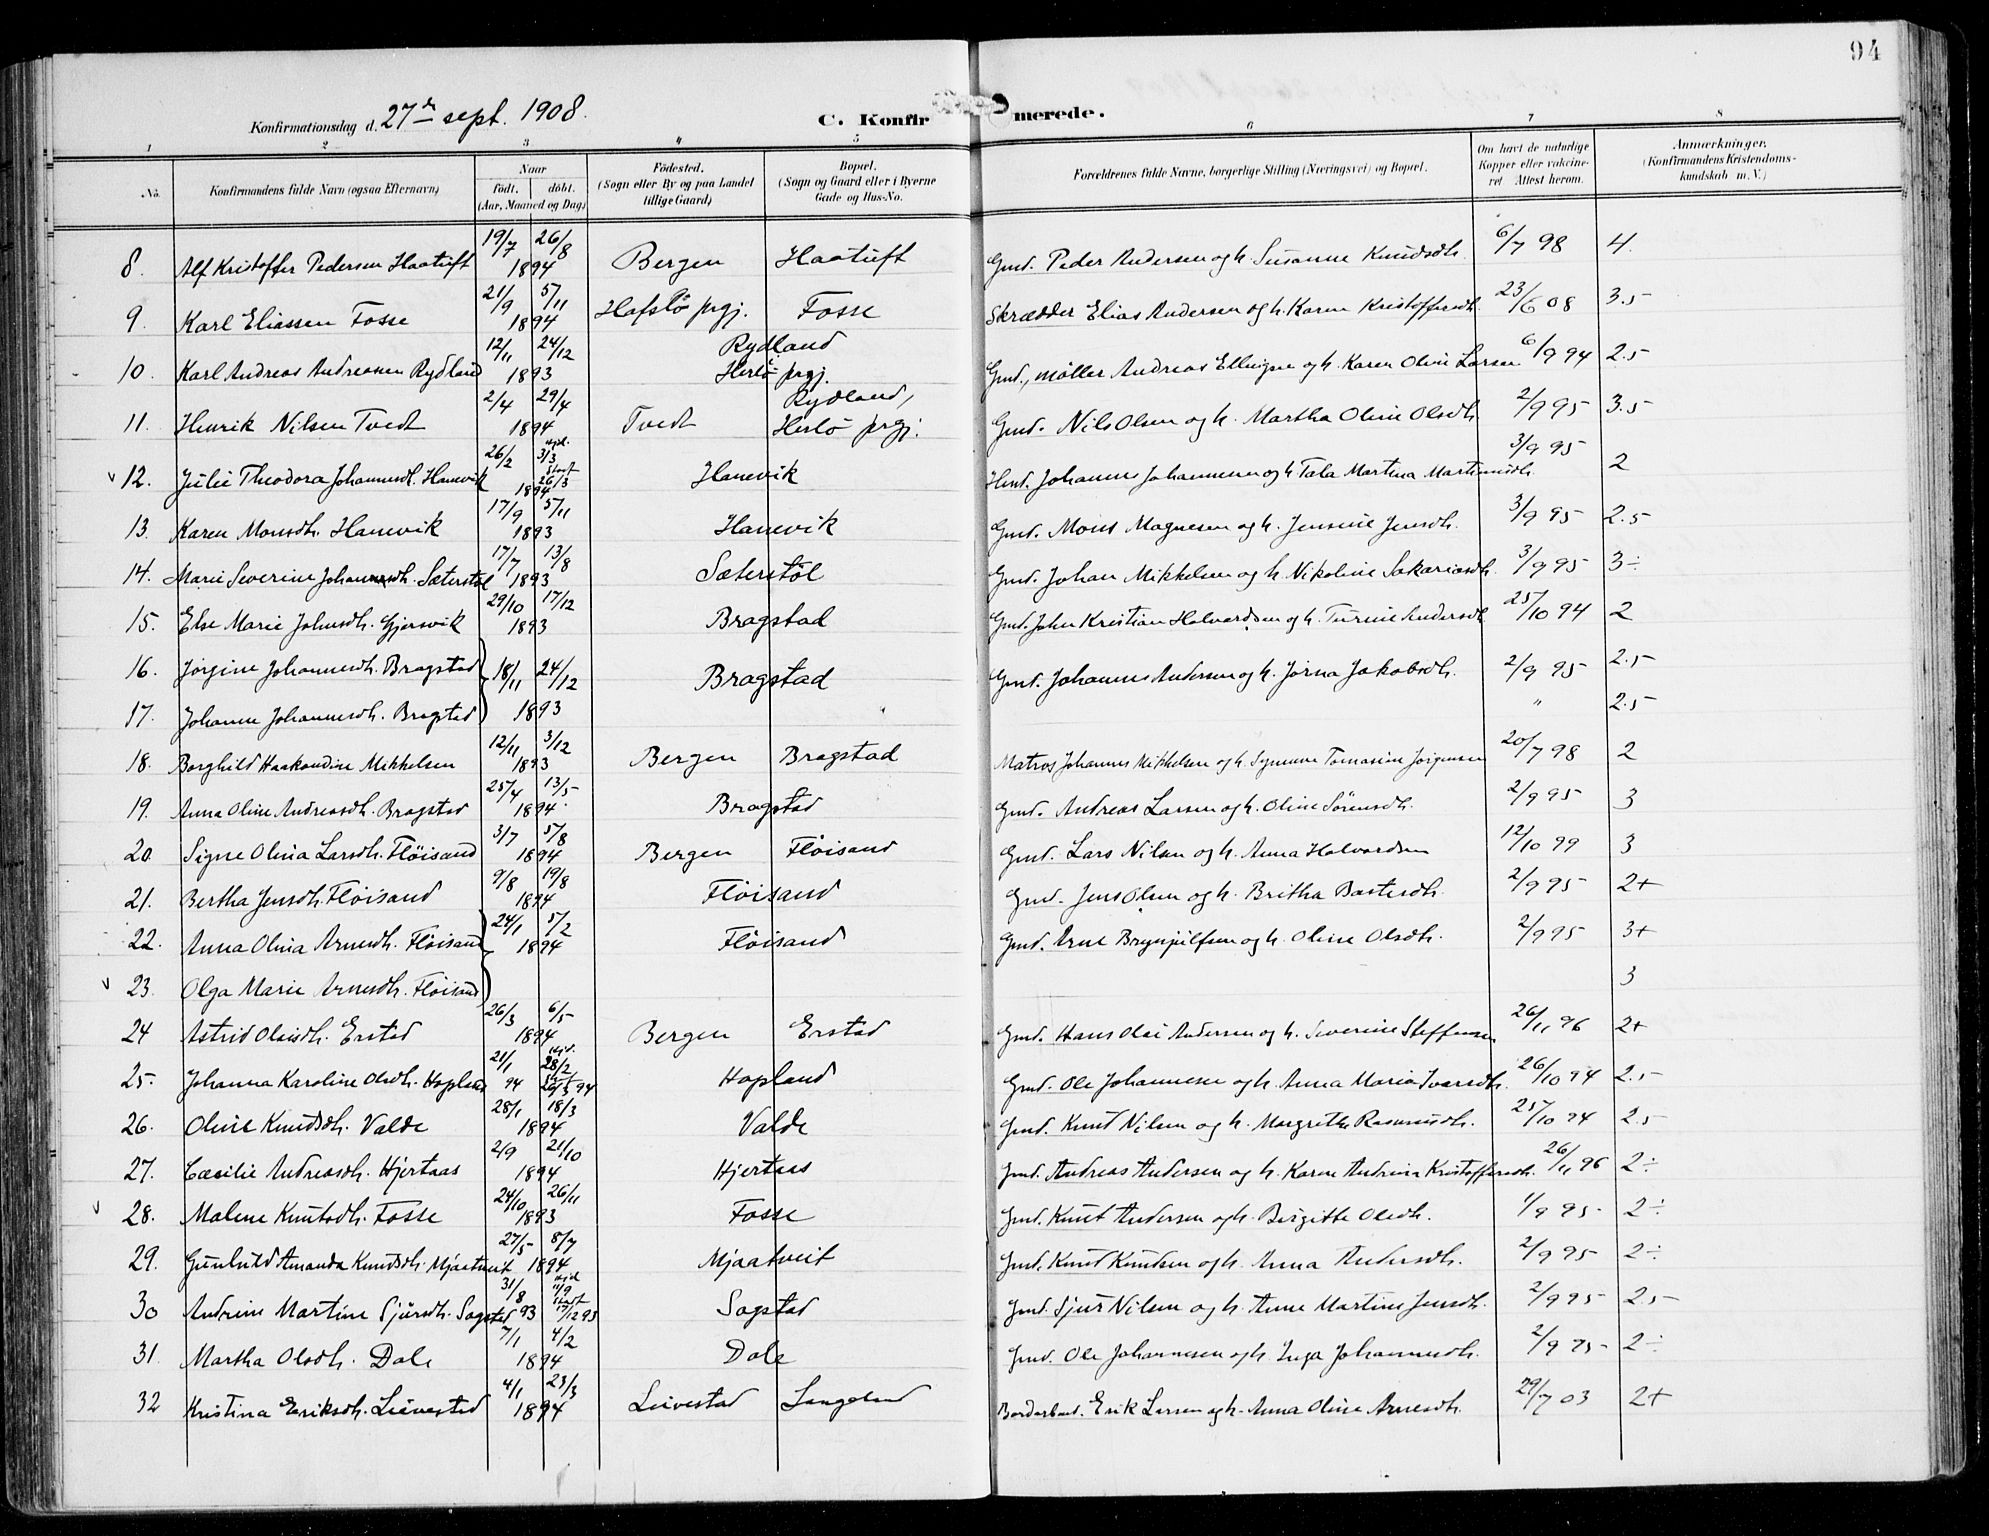 94
Konfirmationsdag d. 27de sept. 1908.
C. Konfirmerede.
1 2 3 4 5 6 7 8
No. Konfirmandens fulde Navn (ogsaa Efternavn) Naar født. døbt. (Aar, Maaned og Dag) Fødested. (Sogn eller By og paa Landet tillige Gaard) Bopæl. (Sogn og Gaard eller i Byerne Gade og Hus-No. Forældrenes fulde Navne, borgerlige Stilling (Næringsvei) og Bopæl. Om havt de naturlige Kopper eller vakcineret Attest herom. Anmærkninger. (Konfirmandens Kristendomskundskab m. V.)
8. Alf Kristoffer Pedersen Haatuft 19/7 26/8 1894 Bergen Haatuft Gmd. Peder Andersen og h. Susanne Knudsdh. 6/7 98 4.
9. Karl Eliassen Fosse 21/9 5/11 1894 Hafslö prgj. Fosse Skrædder Elias Andersen og h. Karen Kristoffersdh. 23/6 08 3.5
10. Karl Andreas Andreassen Rydland 12/11 24/12 1893 Rydland Herlö prgj. Gmd., møller Andreas Ellingsen og h. Karen Oline Larsen 6/9 94 2.5
11. Henrik Nilsen Tvedt 2/4 29/4 1894 Tvedt Rydland, Herlö prgj. Gmd. Nils Olsen og h. Martha Oline Olsdh. 2/9 95 3.5
12. Julie Theodora Johannesdh. Hanevik 26/2 hjd. 3/3 Stadf. 26/3 1894 Hanevik Hmd. Johannes Johannessen og h. Tala Martina Martinusdh. 3/9 95 2
13. Karen Monsdh. Hanevik 17/9 5/11 1893 Hanevik Gmd. Mons Magnesen og h. Jensine Jensdh. 3/9 95 2.5
14. Marie Severine Johansdh. Sæterstøl 17/7 13/8 1893 Sæterstøl Gmd. Johan Mikkelsen og h. Nikoline Sakariasdh. 3/9 95 3÷
15. Else Marie Johnsdh. Gjersvik 29/10 17/12 1893 Bragstad Gmd. John Kristian Halvardsen og h. Turine Andersdh. 25/10 94 2
16. Jørgine Johannesdh. Bragstad 18/11 24/12 Bragstad Gmd. Johannes Andersen og h. Jørna Jakobsdh. 2/9 95 2.5
17. Johanne Johannesdh. Bragstad 1893 " 2.5
18. Borghild Haakondine Mikkelsen 12/11 3/12 1893 Bergen Bragstad Matros Johannes Mikkelsen og h. Tomasine Jørgensen 20/7 98 2
19. Anna Oline Andreasdh. Bragstad 25/4 13/5 1894 Bragstad Gmd. Andreas Larsen og h. Oline Sørensdh. 2/9 95 3
20. Signe Olina Larsdh. Fløisand 3/7 5/8 1894 Bergen Fløisand Gmd. Lars Nilsen og h. Anna Halvardsen 12/10 99 3
21. Bertha Jensdh. Fløisand 9/8 19/8 1894 Fløisand Gmd. Jens Olsen og h. Britha Bastesdh. 2/9 95 2+
22. Anna Olina Arnesdh. Fløisand 24/1 5/2 1894 Fløisand Gmd. Arne Brynjulfsen og h. Oline Olsdh. 2/9 95 3+
23. Olga Marie Arnesdh. Fløisand 3
24 Astrid Olaisdh. Erstad 26/3 6/5 1894 Bergen Erstad Gmd. Hans Olai Andersen og h. Severine Steffensen 26/11 96 2+
25. Johanna Karoline Olsdh. Hopland 21/1 94 hjd. 28/2 94 Hopland Gmd. Ole Johannesen og h. Anna Maria Ivarsdh. 26/10 94 2.5
26. Oline Knudsdh. Valde 28/1 18/3 1894 Valde Gmd. Knut Nilsen og h. Margrethe Rasmusdh. 25/10 94 2.5
27. Cæcilie Andreasdh. Hjertaas 2/9 21/10 1894 Hjertaas Gmd. Andreas Andersen og h. Karen Andrina Kristoffersdh. 26/11 96 2÷
28. Malene Knutsdh. Fosse 24/10 26/11 1893 Fosse Gmd. Knut Andersen og h. Birgitte Olsdh. 1/9 95 2÷
29. Gunhild Amanda Knudsdh. Mjaatveit 27/5 8/7 1894 Mjaatveit Gmd. Knud Knudsen og h. Anna Andersdh. 2/9 95 2÷
30 Andrine Martine Sjursdh. Sagstad 31/8 93 hjd. 11/9 Stadf. 17/12 93 Sagstad Gmd. Sjur Nilsen og h. Anne Martine Jensdh. 2/9 95 2.5
31. Martha Olsdh. Dale 7/1 4/2 1894 Dale Gmd. Ole Johannesen og h. Inga Johannesdh. 2/9 95 2÷
32 Kristina Eriksdh. Leivestad 4/1 23/3 1894 Leivestad Langeland Erik Larsen og h. Anna Oline Arnesdh. 29/7 03 2+